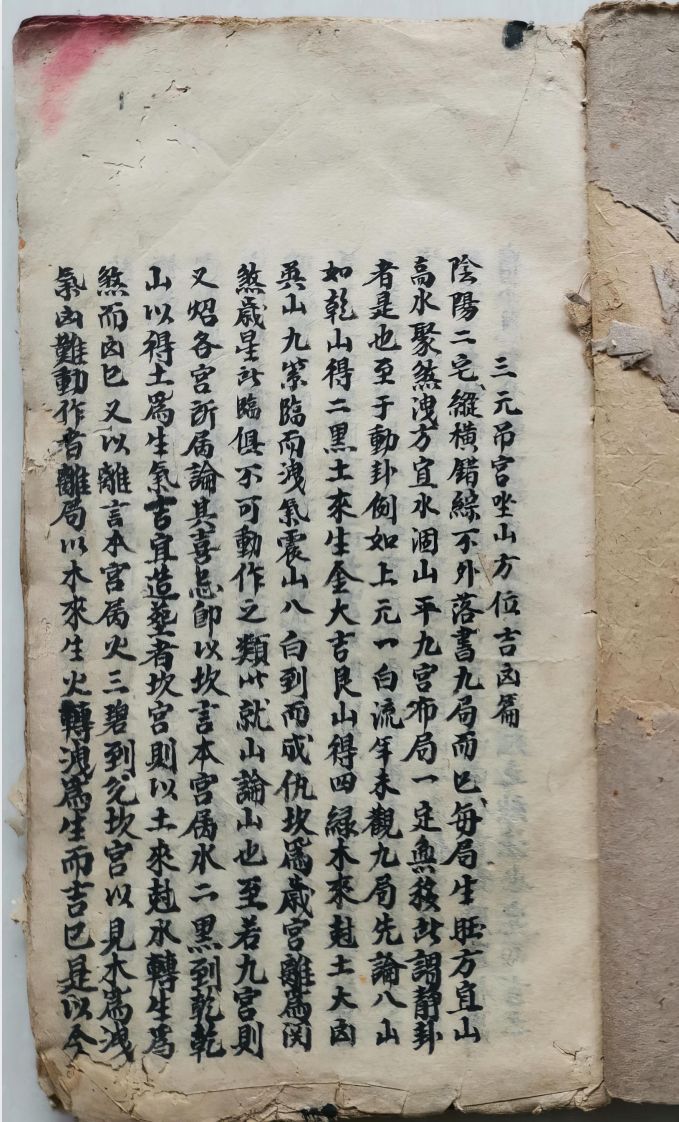 三元吊宮坐山方位吉凶篇
陰陽二宅縱橫錯綜不外落書九局而已每局生旺方宜山
高水聚煞洩方宜水涸山平九宮布局一定無移此謂静卦
者是也至于動卦例如上元一白流年未觀九局先論八山
如乾山得二黑土來生金大吉艮山得四緑木來尅土大凶
巽山九紫臨而洩氣震山八白到而成仇坎爲歲宮離爲関
煞歲星所臨俱不可動作之類此就山論山也至若九宮則
又炤各宮所属論其喜忌卽以坎言本宮属水二黑到乾乾
山以得土爲生氣吉宜造塟者坎宮則以土來尅水轉生爲
煞而凶巳又以離言本宮属火三碧到兌坎宮以見木爲洩
氣凶難動作者離局以木來生火轉洩爲生而吉巳是以今